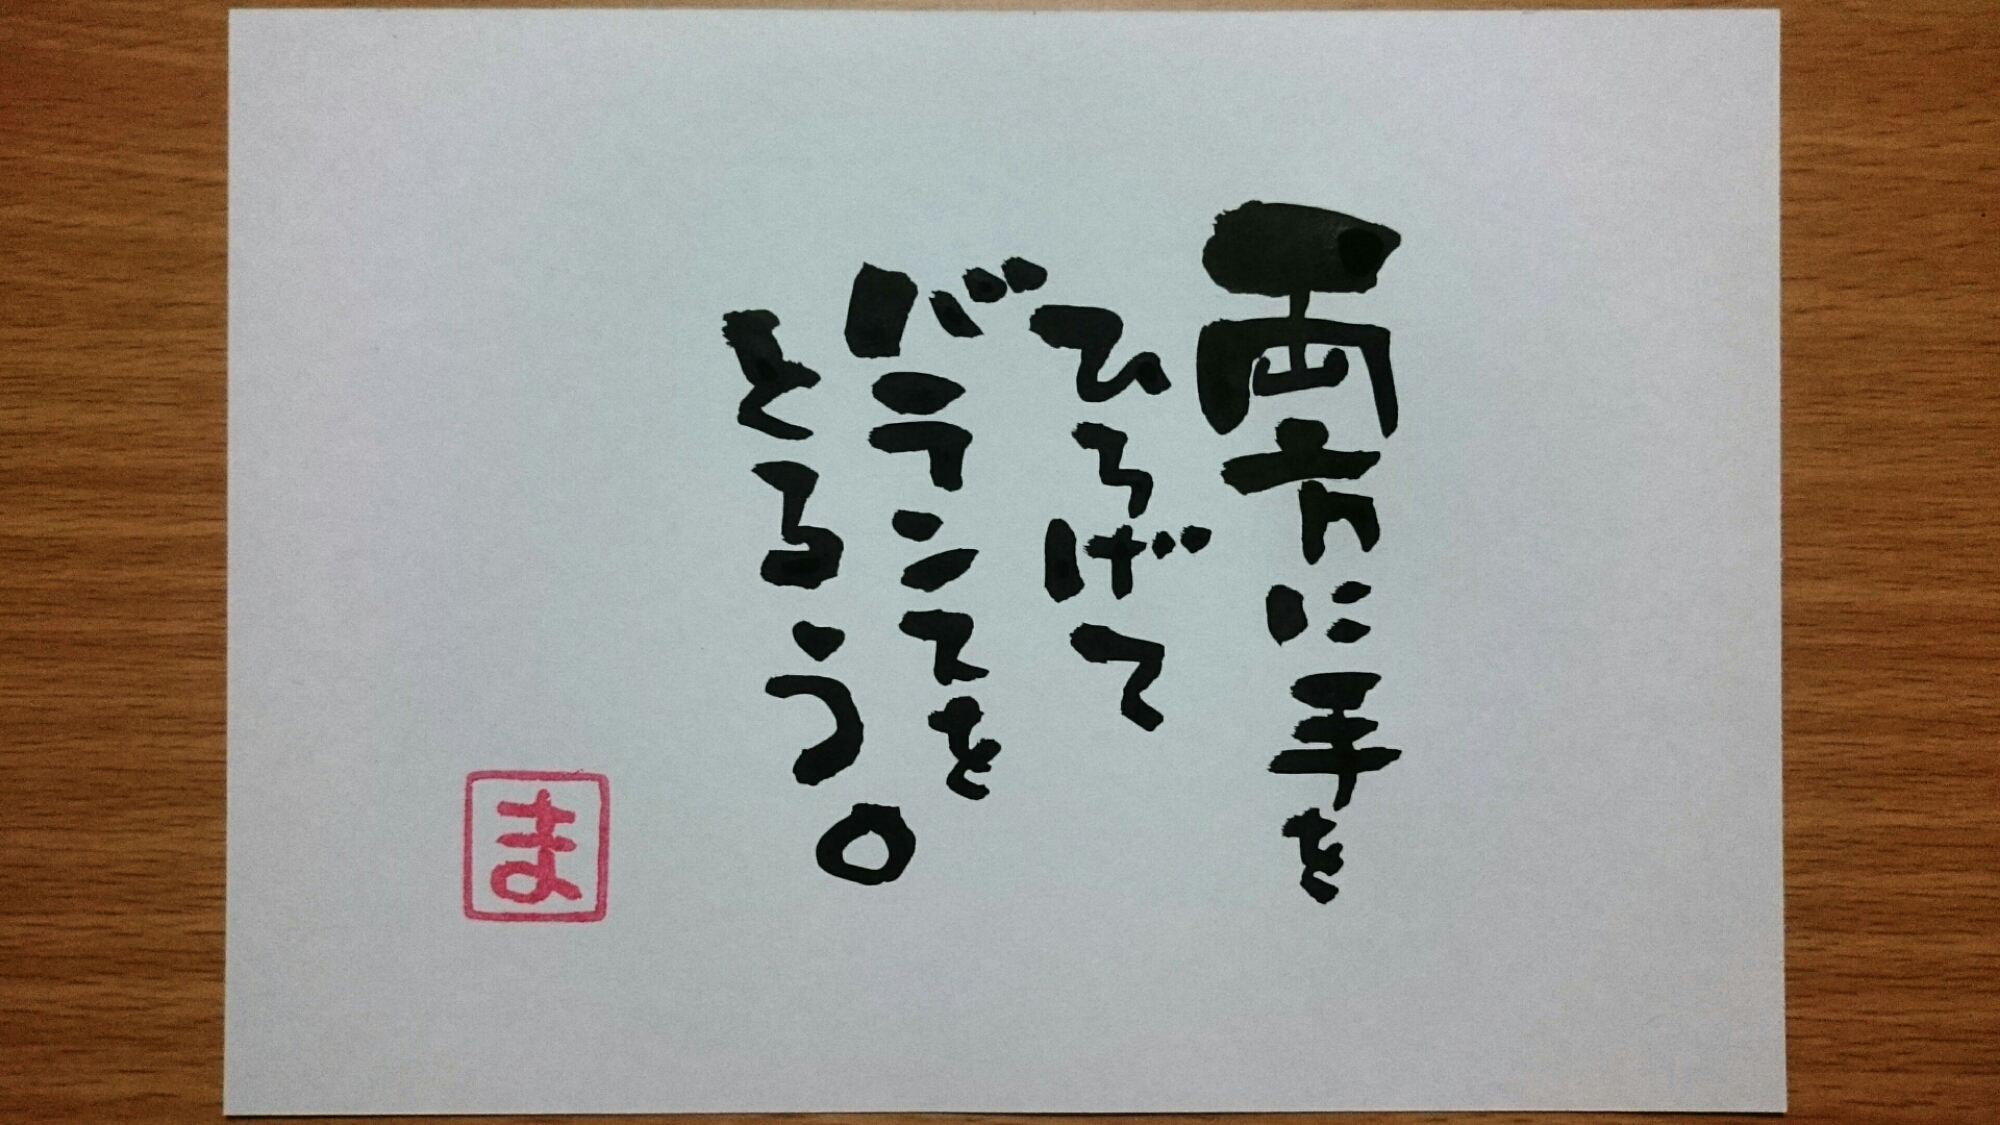 両方に手を
ひろげて
バランスを
とるう。
ま